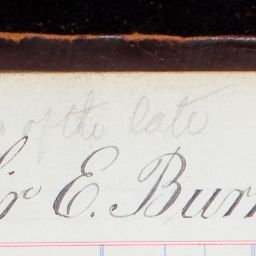 of the late
Sir E. Burn